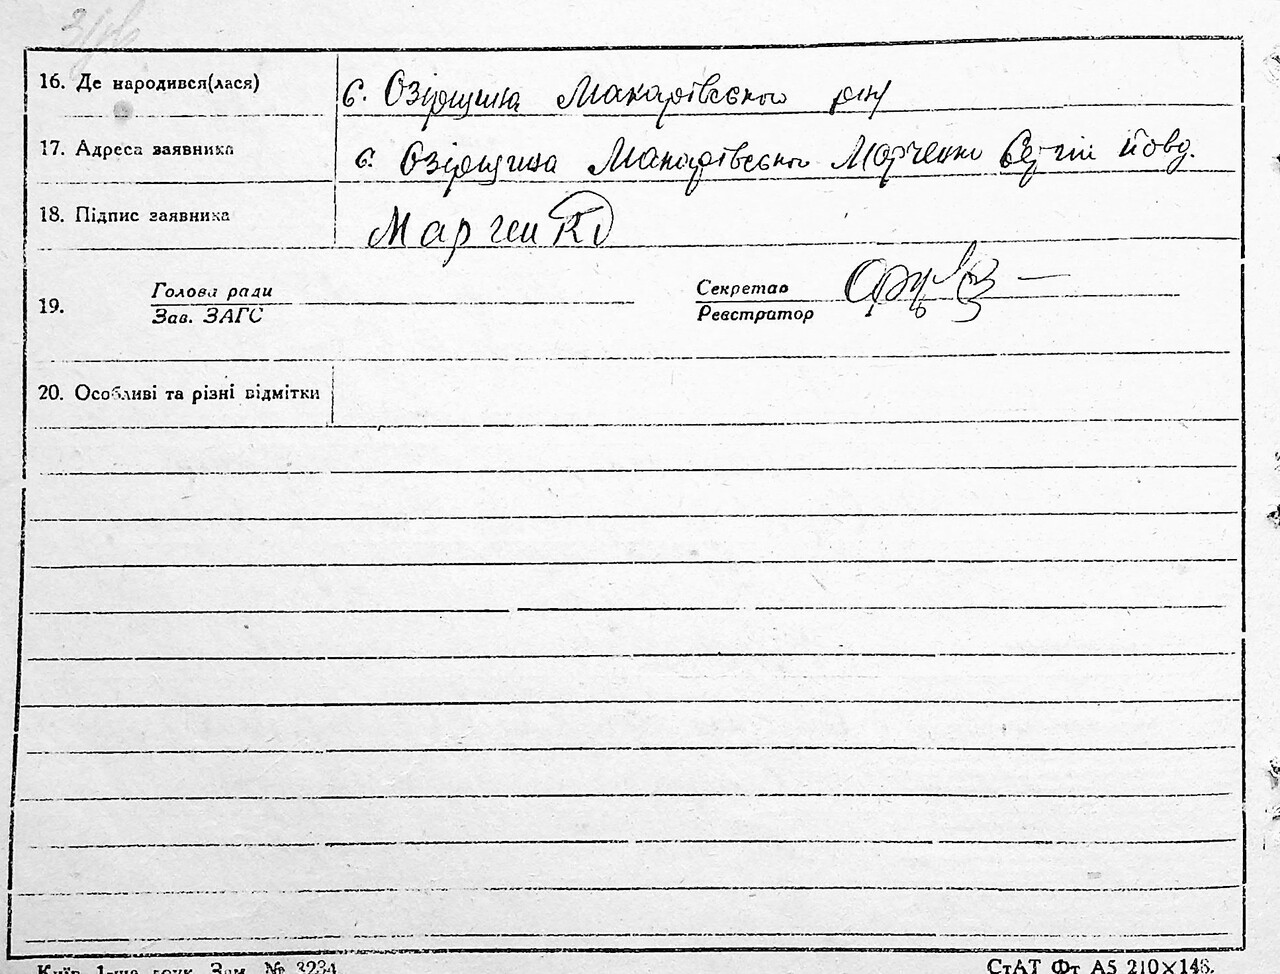 16. Де народився(лася) с. Озірщина Макарівського р-ну
17. Адреса заявника с. Озірщина Макарівського Марченко
18. Підпис заявника Марченко
19. Голова ради Секретар
Зав. ЗАГС Реєстратор
20. Особливі та різні відмітки
Київ 1-ша друк. Зам. № 3234
СтАТ Фт А5 210×148.